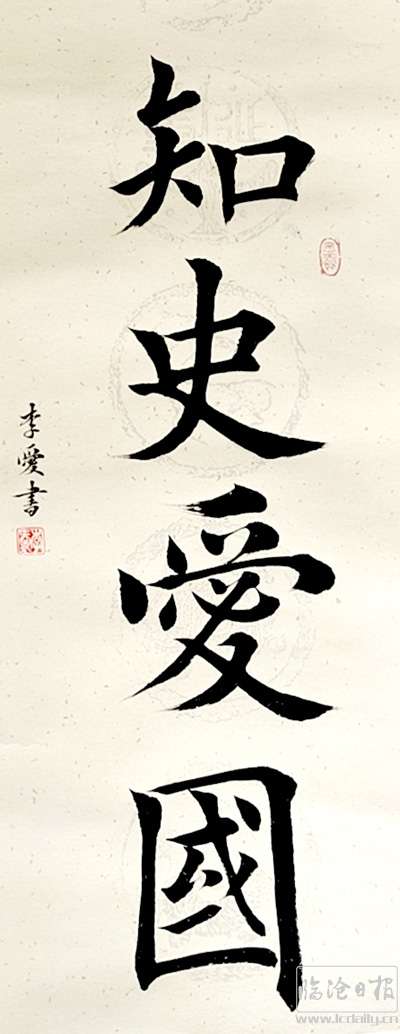 知史愛國
李愛書
临沧日报
www.lcdaily.cn